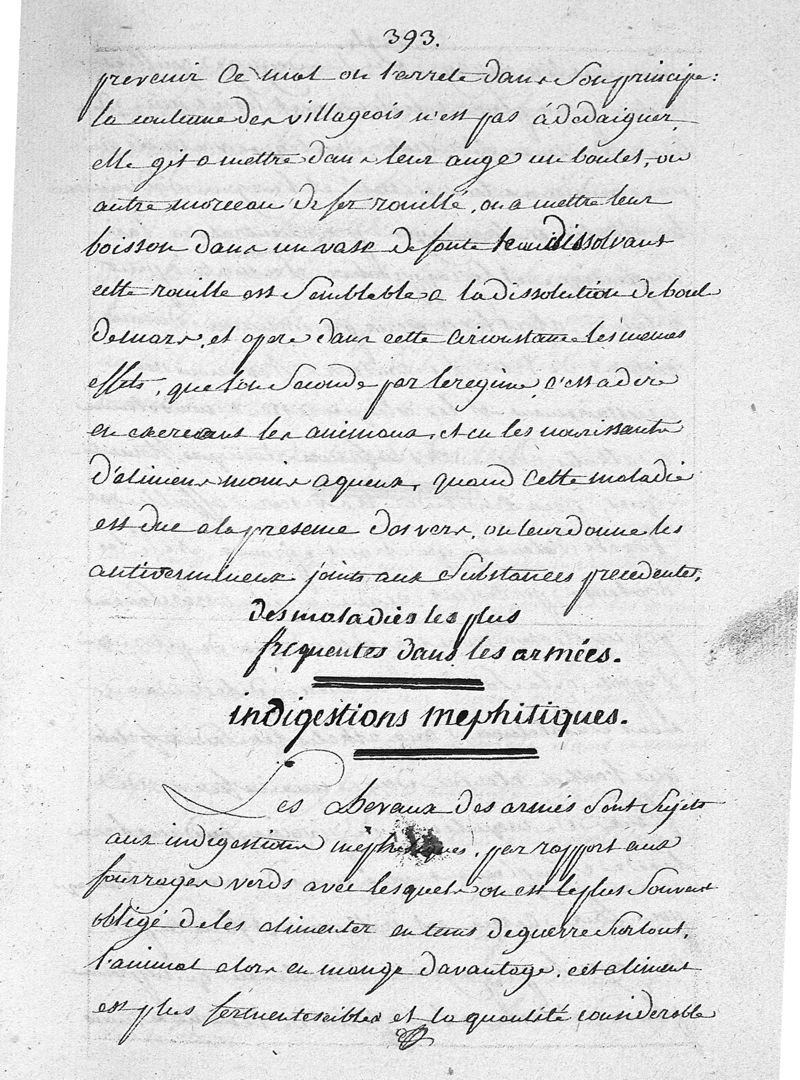 393.
prevenir ce mal ou l'arrete dans son principe:
la coutume des villageois n'est pas á dédaigner,
elle git a mettre dans leur auge un boulet, ou
autre morceau de fer rouillé, ou a mettre leur
boisson dans un vase de fonte l'eau dissolvant
cette rouille est semblable a la dissolution de boule
de mars, et opere dans cette circonstance les memes
effets, que l'on seconde par le regime, c'est a dire
en exercant les animaux, et en les nourissants
d'aliments moins aqueux, quand cette maladie
est due a la presence des vers, on leur donne les
antivermineux joints aux substances precedentes,
des maladies les plus
frequentes dans les armées.
indigestions mephitiques.
Les chevaux des armés sont sujets
aux indigestions mephitiques, par rapport aux
fourrages verds avec lesquels on est le plus souvent
obligé de les alimenter en tems de guerre surtout,
l'animal alors en mange davantage, cet aliment
est plus fermentescibles et la quantité considerable